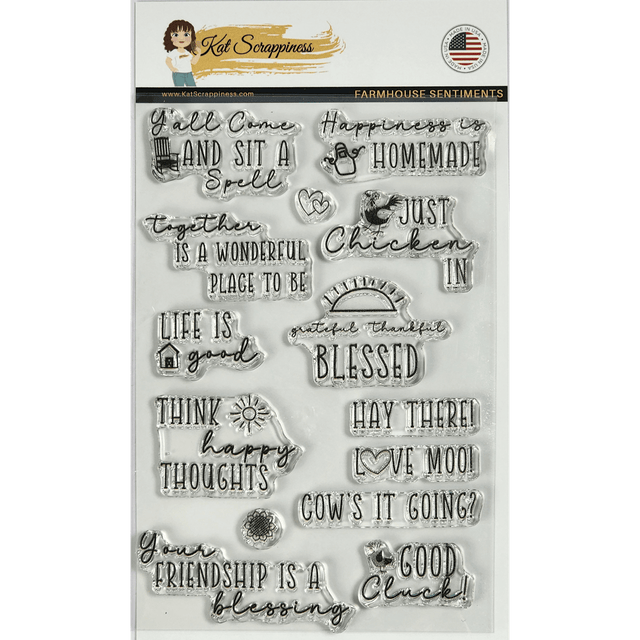 Kat Scrappiness
MADE IN USA
MADE IN USA
www.KatScrappiness.com
FARMHOUSE SENTIMENTS
Y'all Come
AND SIT A
Spell
Happiness is
HOMEMADE
together
IS A WONDERFUL
PLACE TO BE
JUST
Chicken
IN
LIFE IS
good
grateful thankful
BLESSED
THINK
happy
THOUGHTS
HAY THERE!
LOVE MOO!
COW'S IT GOING?
Your
FRIENDSHIP IS A
blessing
GOOD
Cluck!